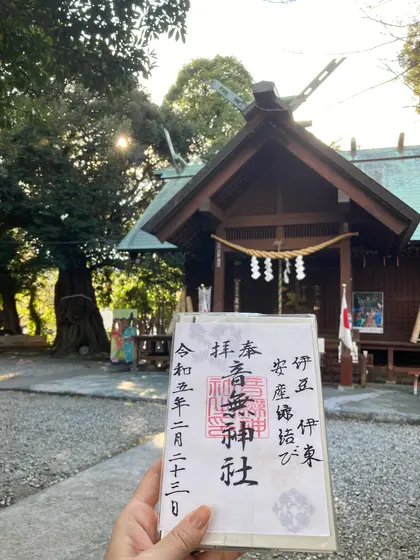 伊豆 伊東
安産 縁結び
奉拝
音無神社
令和五年二月二十三日